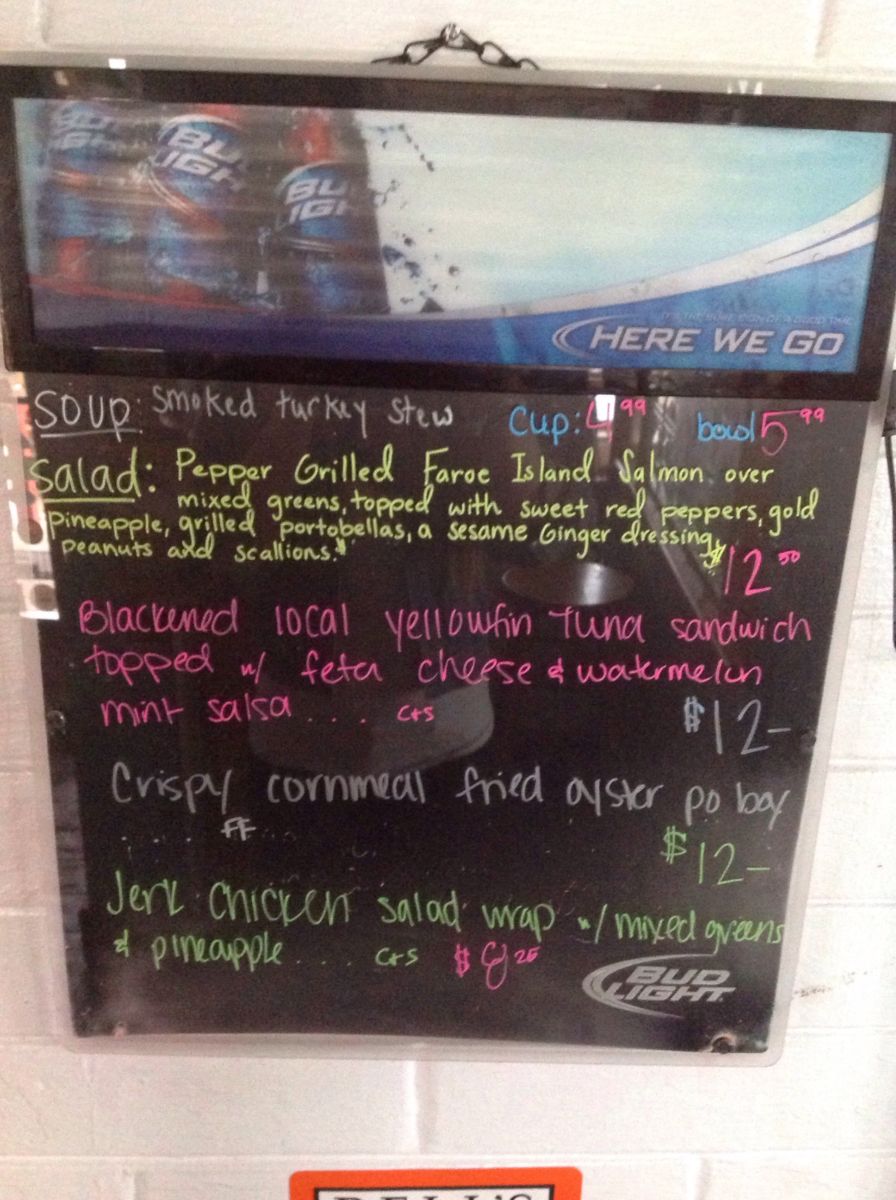 BUD LIGH
BU IGH
HERE WE GO
SOUP: Smoked turkey Stew Cup: 4.99 bowl 5.99
Salad: Pepper Grilled Faroe Island Salmon over
mixed greens, topped with sweet red peppers, gold
pineapple, grilled portobellas, a sesame Ginger dressing,
peanuts and scallions. $12.50
Blackened local yellowfin tuna sandwich
topped w/ feta cheese & watermelon
mint salsa . . . . c+s $12-
Crispy cornmeal fried oyster po boy
. . . . . FF . . . $12-
Jerk chicken salad wrap w/ mixed greens
& pineapple . . . . c+s $8.25
BUD LIGHT
BELL'S